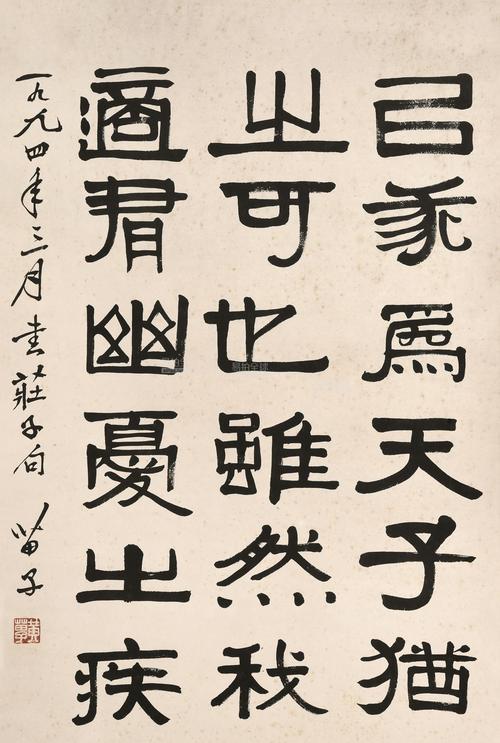 㠯我為天子猶
之可也雖然我
適有幽憂之疾
一九八四年三月書莊子句 苗子
易拍全球